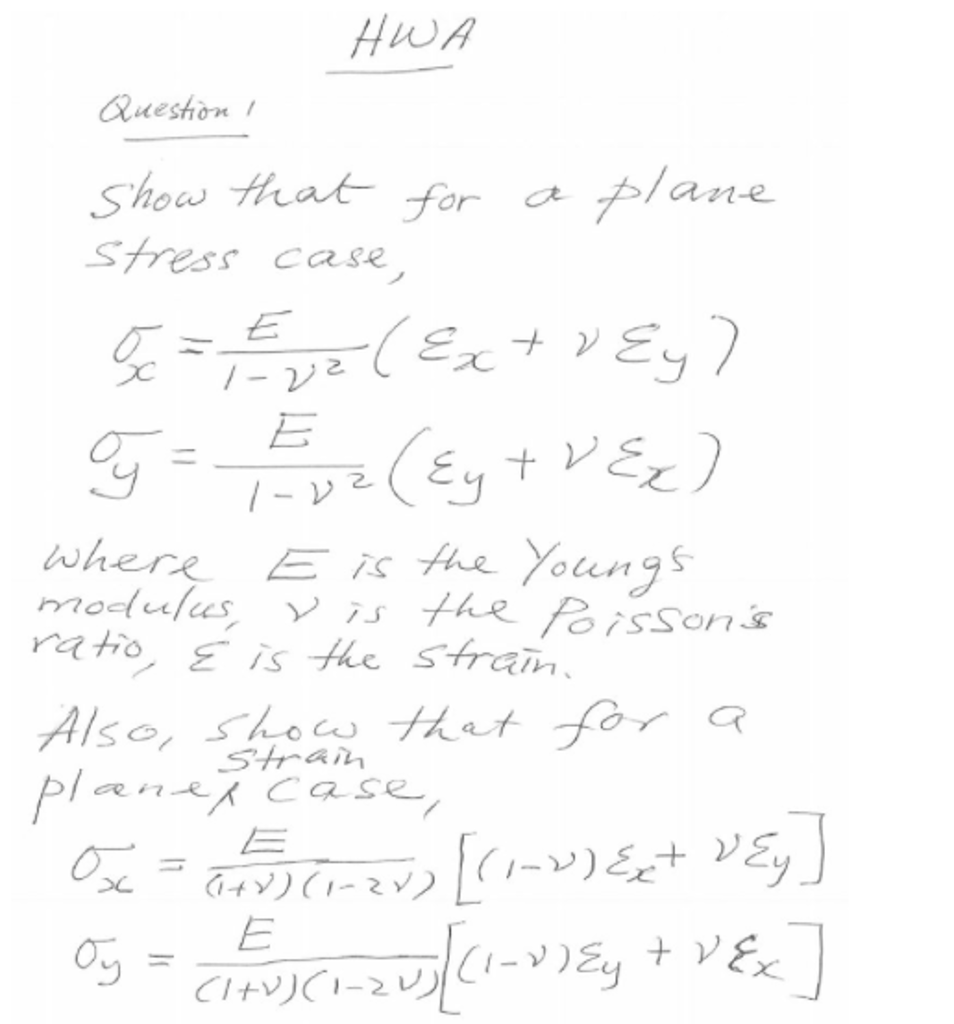 HWA
Question 1
Show that for a plane
stress case,
σx = E/(1-ν²) (εx + νεy)
σy = E/(1-ν²) (εy + νεx)
where E is the Young's
modulus, ν is the Poisson's
ratio, ε is the strain.
Also, show that for a
strain
plane, case,
σx = E/((1+ν)(1-2ν)) [(1-ν)εx + νεy]
σy = E/((1+ν)(1-2ν)) [(1-ν)εy + νεx]